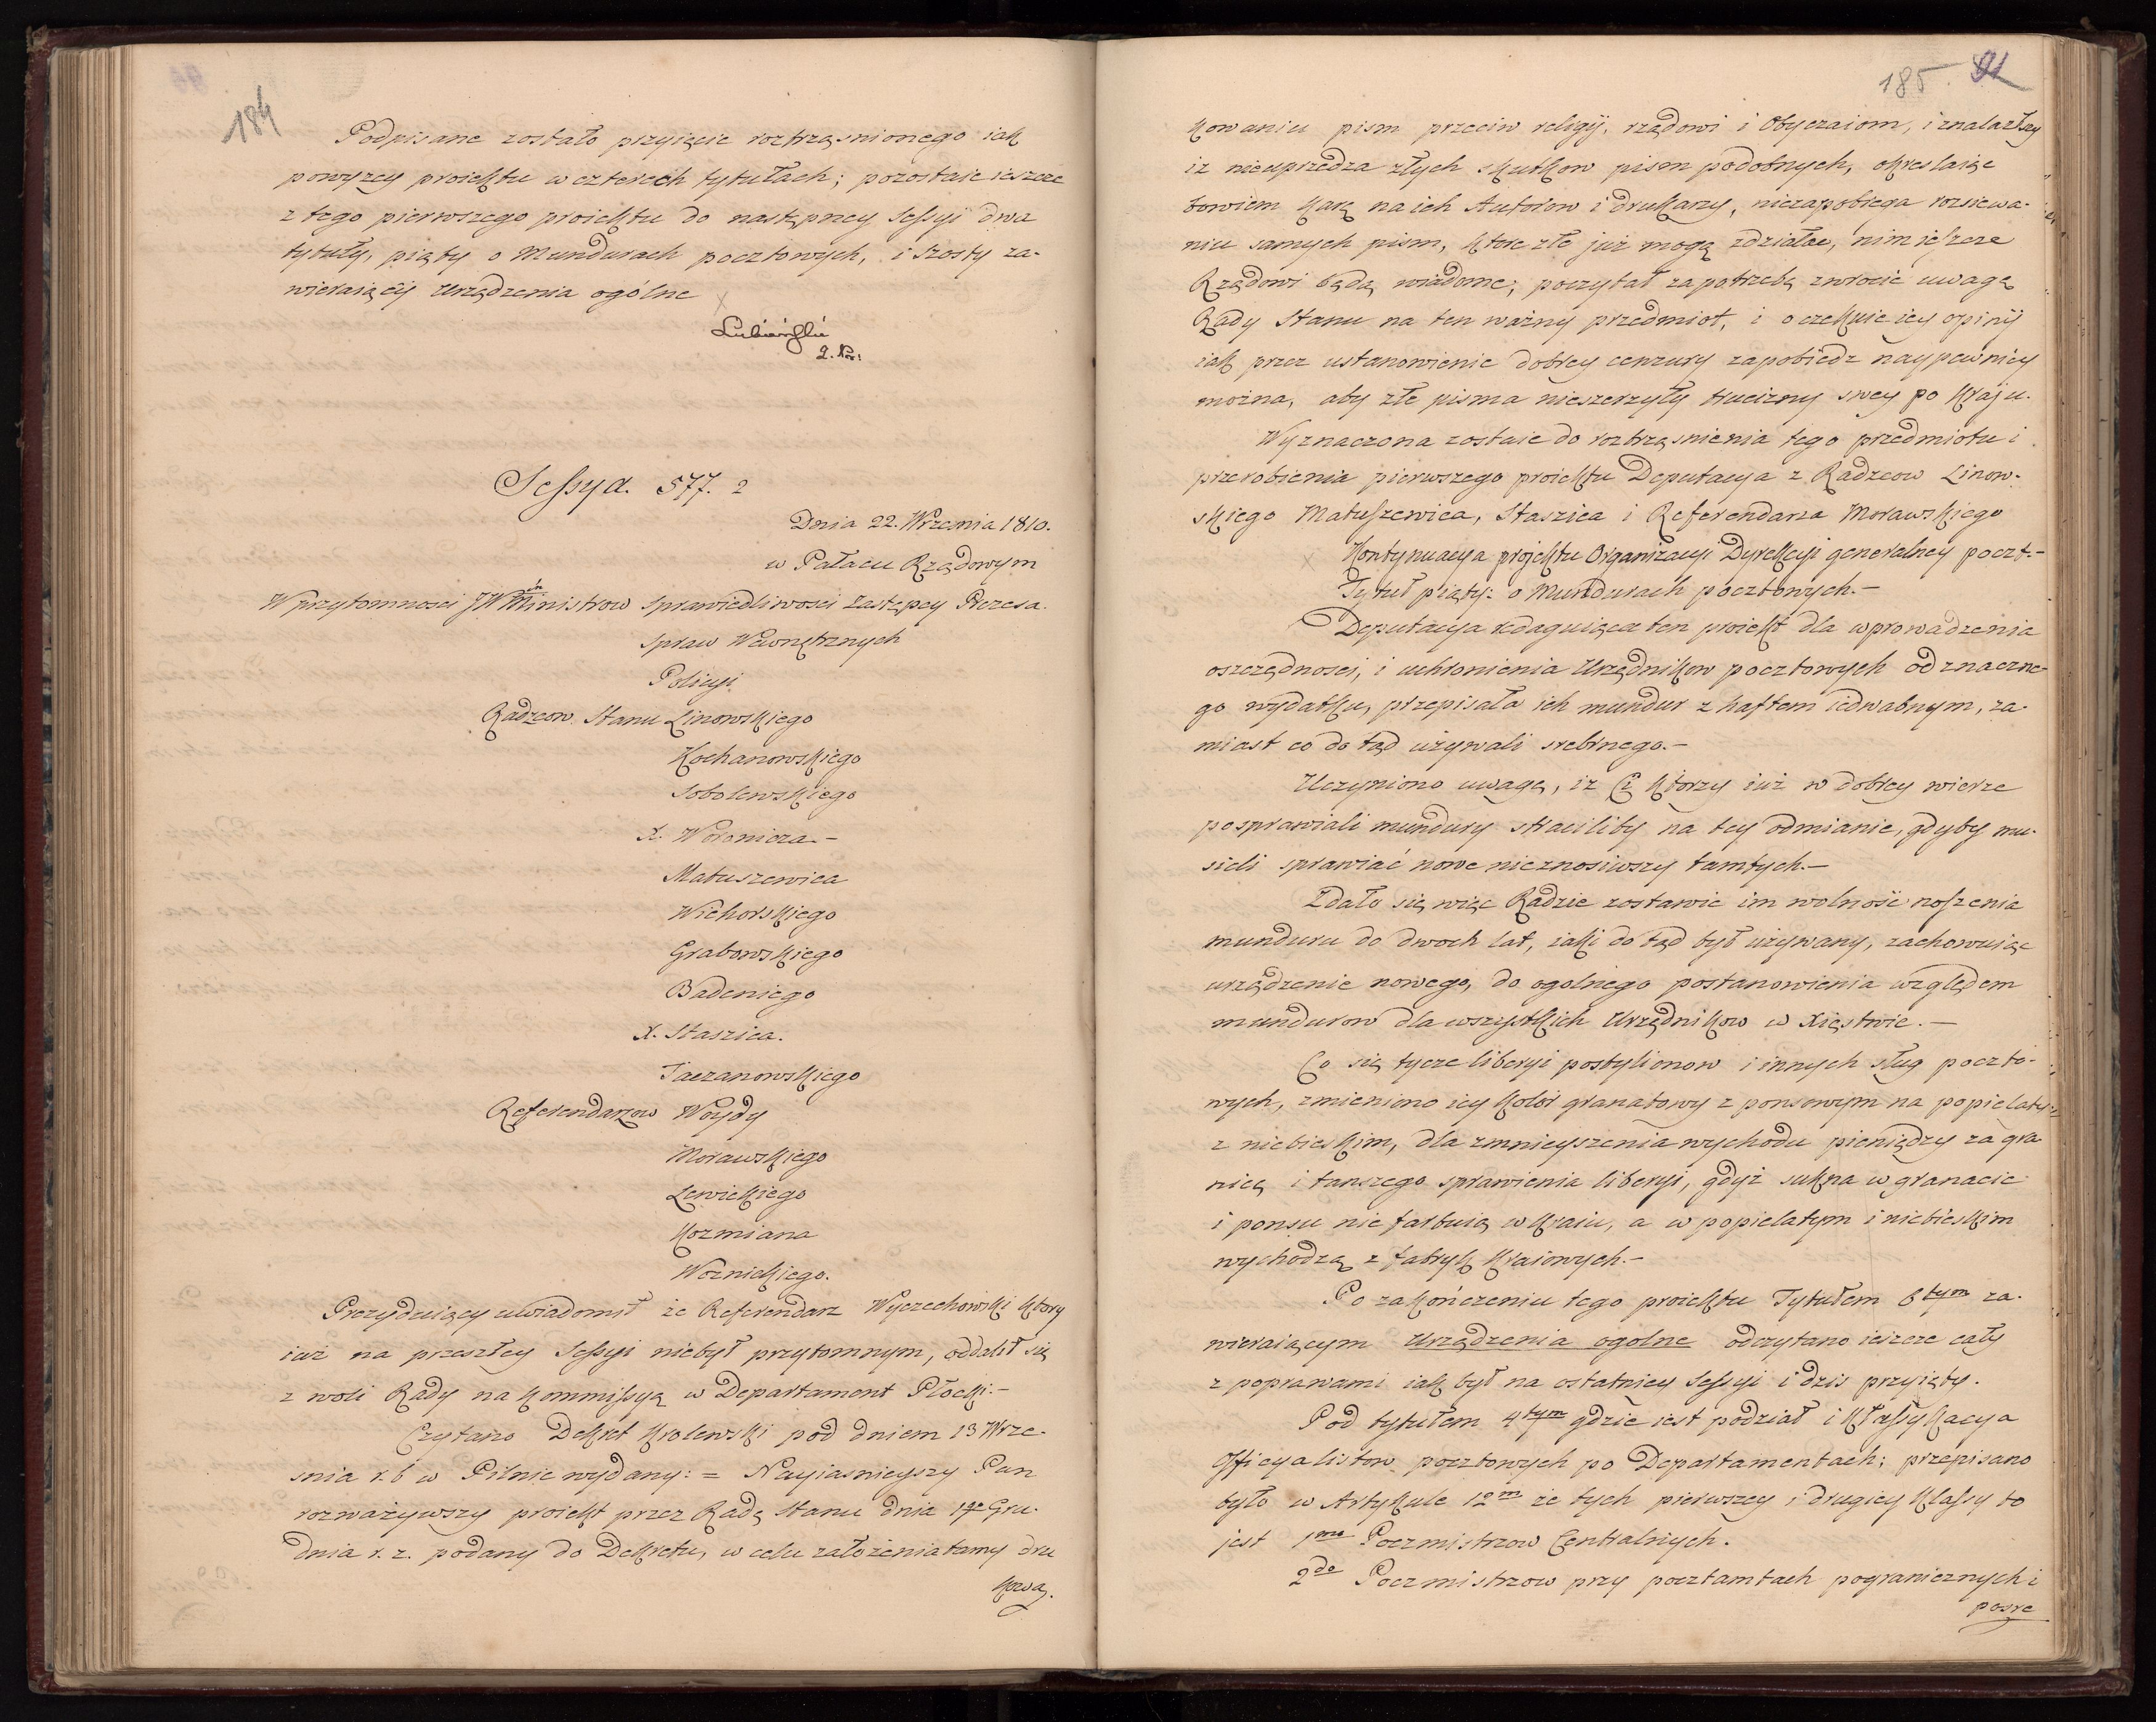 184
Podpisane zostało przyięcie roztrząsnionego iak
powyzey proiektu w czterech tytułach; pozostaie ieszcze
z tego pierwszego proiektu do następney Sessyi dwa
tytuły, piąty o Mundurach pocztowych, i szosty za-
wieraiący Urządzenia ogólne
Lubieński
Sessya. 577. 2
Dnia 22. Wrzesnia 1810.
w Pałacu Rządowym
W przytomnosci JW Ministrow Sprawiedliwosci Zastępcy Prezesa.
Spraw Wewnętrznych
Policyi
Radzcow Stanu Linowskiego
Kochanowskiego
Sobolewskiego
X. Woronicza –
Matuszewica
Wichorskiego
Grabowskiego
Badeniego
X. Staszica.
Taczanowskiego
Referendarzow Woydy
Morawskiego
Lewickiego
Kozmiana
Woznickiego.
Prezyduiący uwiadomił że Referendarz Wyczechowski ktory
iuż na przeszłey Sessyi niebył przytomnym, oddalił się
z woli Rady na Kommissyą w Departament Płocki. –
Czytano Dekret Krolewski pod dniem 13 Wrze-
snia r. b w Pilnic wydany: = Nayiasnieyszy Pan
rozważywszy proiekt przez Radę Stanu dnia 1go Gru-
dnia r. z. podany do Dekretu, w celu założenia tamy dru
kowa.
185. 91
kowaniu pism przeciw religij, rządowi i Obyczaiom, i znalazłszy
iz nieuprzedza złych skutkow pism podobnych, okreslaiąc
bowiem karę na ich Autorow i drukarzy, niezapobiega rozsiewa-
niu samych pism, ktore złe już mogą zdziałac, nim ieszcze
Rządowi będą wiadome; poczytał za potrzebę zwrocic uwagę
Rady Stanu na ten ważny przedmiot, i oczekuie iey opinij
iak przez ustanowienie dobrey cenzury zapobiedz naypewniey
można, aby złe pisma nieszerzyły trucizny swey po kraju.
Wyznaczona zostaie do roztrząsnienia tego przedmiotu i
przerobienia pierwszego proiektu Deputacya z Radzcow Linow-
skiego Matuszewica, Staszica i Referendarza Morawskiego
Kontynuacya projektu Organizacyi Dyrekcyi generalney poczt. –
Tytuł piąty: o Mundurach pocztowych. –
Deputacya redaguiąca ten proiekt dla wprowadzenia
oszczędnosci, i uchronienia Urzędnikow pocztowych od znaczne-
go wydatku, przepisała ich mundur z haftem iedwabnym, za-
miast co do tąd używali srebrnego. –
Uczyniono uwagę, iz Ci ktorzy iuż w dobrey wierze
posprawiali mundury straciliby na tey odmianie, gdyby mu-
sieli sprawiać nowe nieznosiwszy tamtych. –
Zdało się więc Radzie zostawic im wolność noszenia
munduru do dwoch lat, iaki do tąd był używany, zachowuiąc
urządzenie nowego, do ogolnego postanowienia względem
mundurow dla wszystkich Urzędnikow w Xięstwie. –
Co się tycze liberyi postylionow i innych sług poczto-
wych, zmieniono iey kolor granatowy z ponsowym na popielaty
z niebieskim, dla zmnieyszenia wychodu pieniędzy za gra
nicę i tanszego sprawienia liberyi, gdyż sukna w granacie
i ponsu nie farbuią w kraiu, a w popielatym i niebieskim
wychodzą z fabryk kraiowych. –
Po zakończeniu tego proiektu Tytułem 6tym za-
wieraiącym Urządzenia ogolne odczytano ieszcze cały
z poprawami iak był na ostatniey Sessyi i dzis przyięty.
Pod tytułem 4tym gdzie iest podział i klassyfikacya
Officyalistow pocztowych po Departamentach; przepisano
było w Artykule 12m że tych pierwszey i drugiey klassy to
jest 1mo Poczmistrzow Centralnych.
2do Poczmistrzow przy pocztamtach pogranicznych i
posre